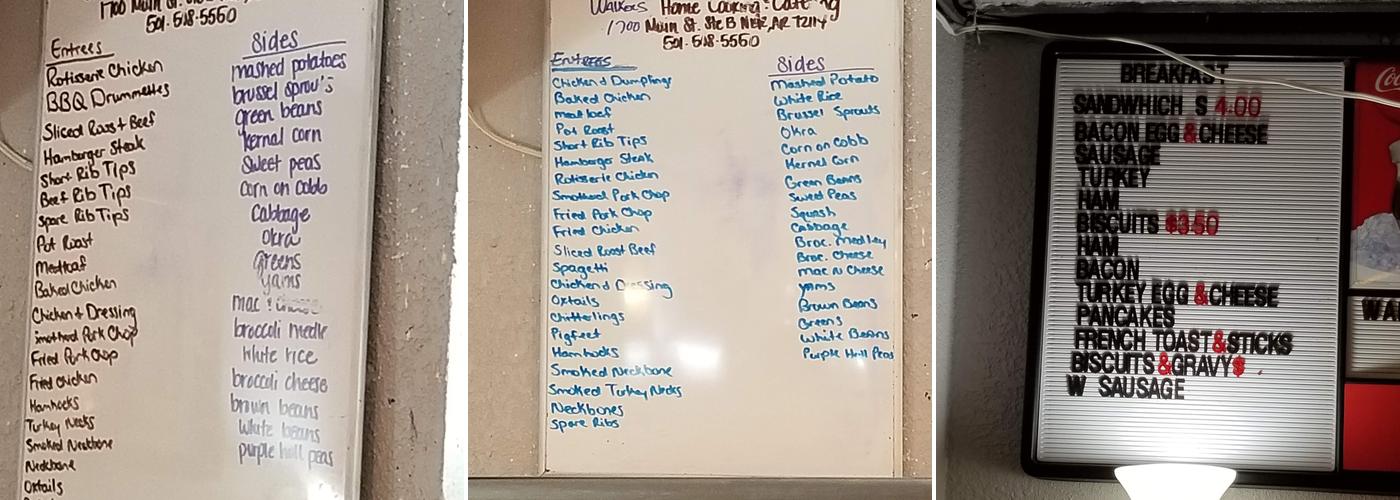 1700 Main St.
501-508-5560
Entrees
Rotisserie Chicken
BBQ Drummettes
Sliced Roast Beef
Hamburger Steak
Short Rib Tips
Beef Rib Tips
Spare Rib Tips
Pot Roast
Meatloaf
Baked Chicken
Chicken & Dressing
Smothered Pork Chop
Fried Pork Chop
Fried Chicken
Hamhocks
Turkey Necks
Smoked Neckbone
Neckbone
Oxtails
Sides
mashed potatoes
brussel sprou's
green beans
kernal corn
Sweet peas
Corn on cobb
Cabbage
Okra
Greens
yams
mac & cheese
broccoli medle
White rice
broccoli cheese
brown beans
White beans
purple hull peas
Walkers Home Cooking & Catering
1700 Main St. Ste B NLR, AR 72114
501-508-5560
Entrees
Chicken & Dumplings
Baked Chicken
meatloaf
Pot Roast
Short Rib Tips
Hamburger Steak
Rotisserie Chicken
Smothered Pork Chop
Fried Pork Chop
Fried Chicken
Sliced Roast Beef
Spagetti
Chicken & Dressing
Oxtails
Chitterlings
Pigfeet
Hamhocks
Smoked Neckbone
Smoked Turkey Necks
Neckbones
Spare Ribs
Sides
Mashed Potato
White Rice
Brussel Sprouts
Okra
Corn on Cobb
Kernel Corn
Green Beans
Sweet Peas
Squash
Cabbage
Broc. Medley
Broc. Cheese
mac N Cheese
yams
Brown Beans
Greens
White Beans
Purple Hull Peas
BREAKFAST
SANDWHICH S 4.00
BACON EGG & CHEESE
SAUSAGE
TURKEY
HAM
BISCUITS $3.50
HAM
BACON
TURKEY EGG & CHEESE
PANCAKES
FRENCH TOAST & STICKS
BISCUITS & GRAVY $
W SAUSAGE